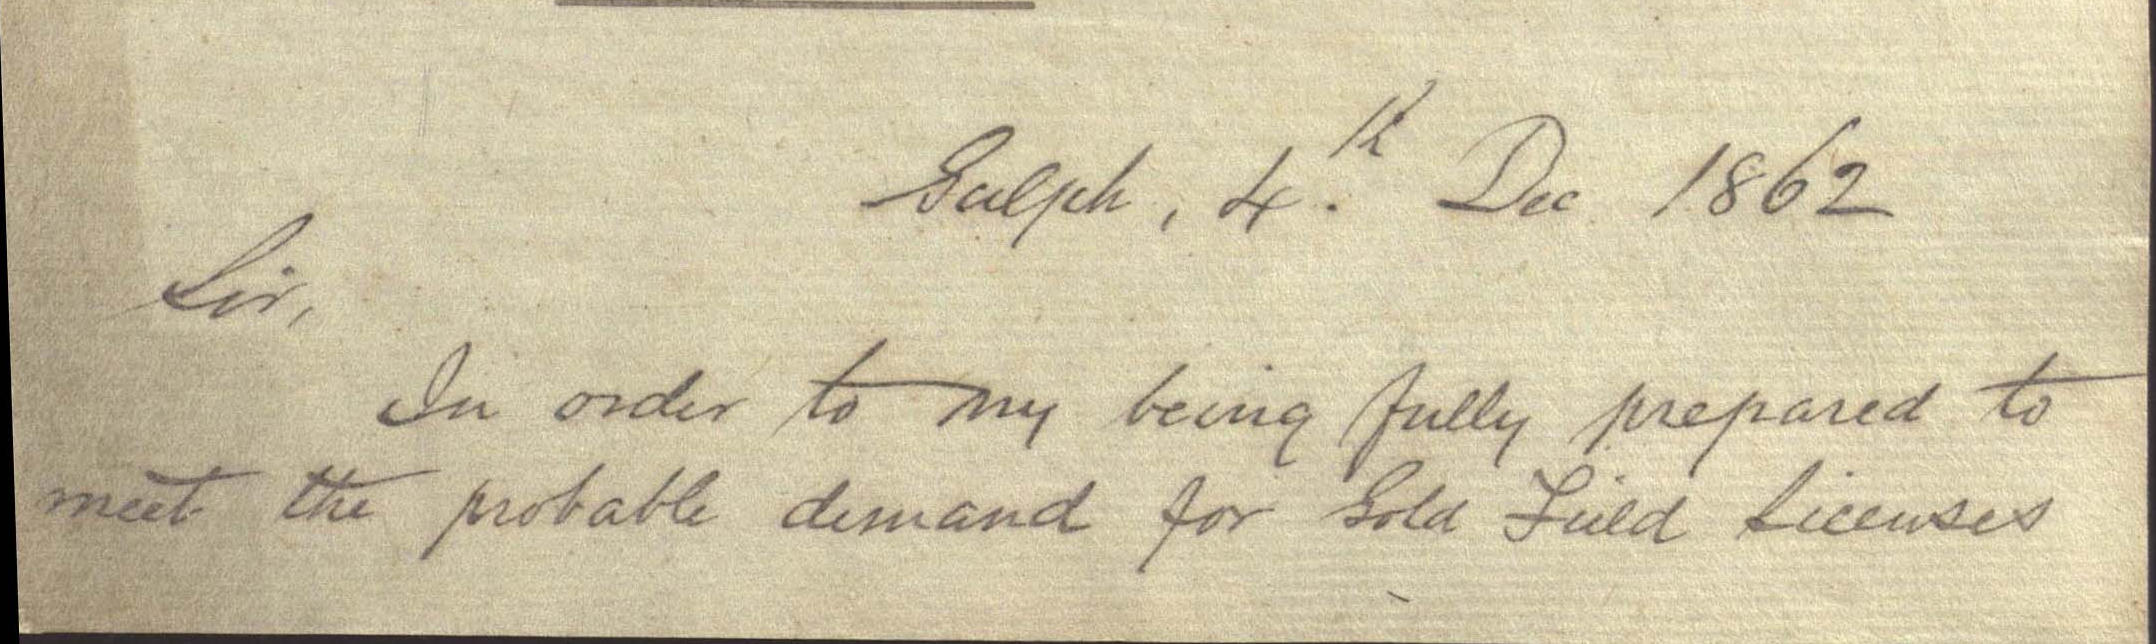 Guelph, 4th Dec 1862
Sir,
In order to my being fully prepared to
meet the probable demand for Gold Field Licenses